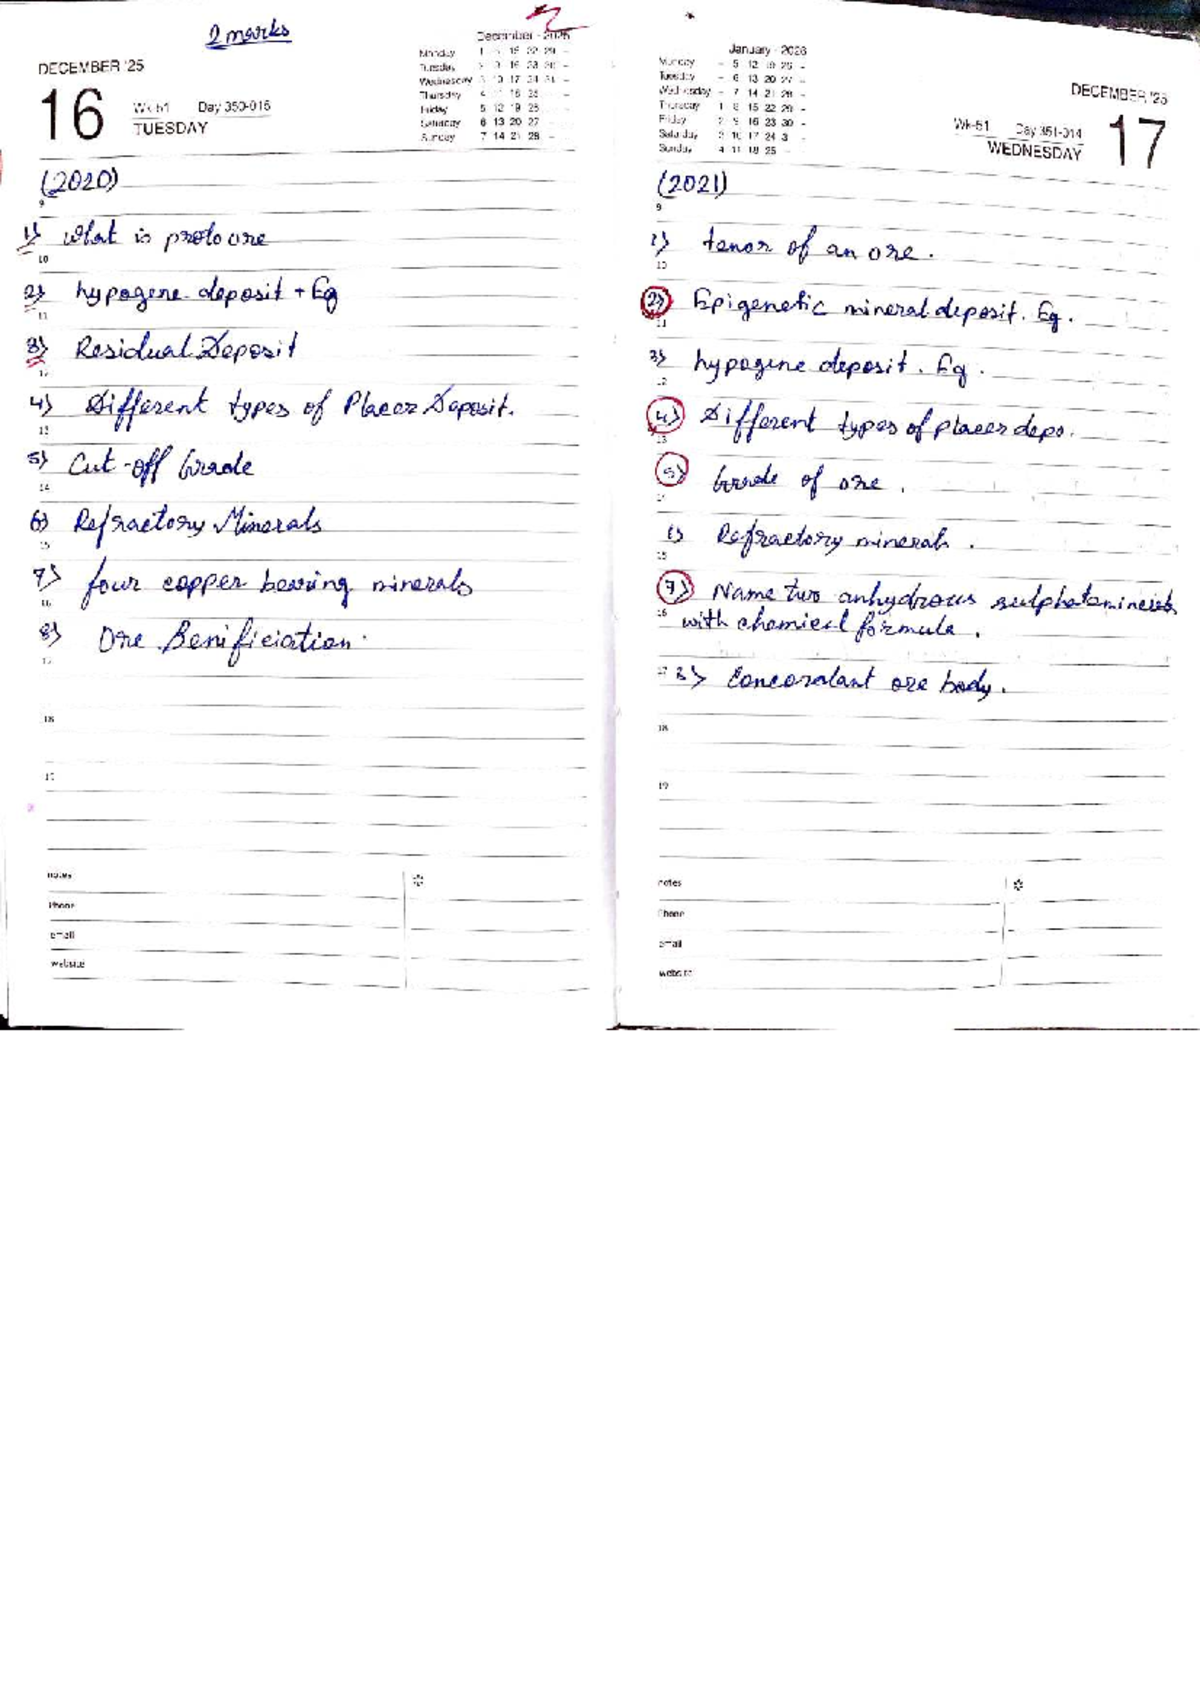 2 marks
DECEMBER '25
16
Wk-51 Day 350-015
TUESDAY
December - 2025
Monday 1 8 15 22 29 -
Tuesday 2 9 16 23 30 -
Wednesday 3 10 17 24 31 -
Thursday 4 11 18 25 - -
Friday 5 12 19 26 - -
Saturday 6 13 20 27 - -
Sunday 7 14 21 28 - -
(2020)
9
1) What is proto ore
10
2) hypogene deposit + Eg
11
3) Residual Deposit
12
4) Different types of Placer Deposit.
13
5) Cut-off Grade
14
6) Refractory Minerals
15
7) four copper bearing minerals
16
8) Ore Benificiation.
17
18
19
notes
Phone
email
website
January - 2026
Monday - 5 12 19 26 -
Tuesday - 6 13 20 27 -
Wednesday - 7 14 21 28 -
Thursday 1 8 15 22 29 -
Friday 2 9 16 23 30 -
Saturday 3 10 17 24 31 -
Sunday 4 11 18 25 - -
DECEMBER '25
Wk-51 Day 351-014
WEDNESDAY
17
(2021)
9
1) tenor of an ore.
10
2) Epigenetic mineral deposit. Eg.
11
3) hypogene deposit. Eg.
12
4) Different types of placer depo.
13
5) Grade of ore.
6) Refractory minerals.
15
7) Name two anhydrous sulphate minerals
16 with chemical formula.
17 8) Concordant ore body.
18
19
notes
Phone
email
website